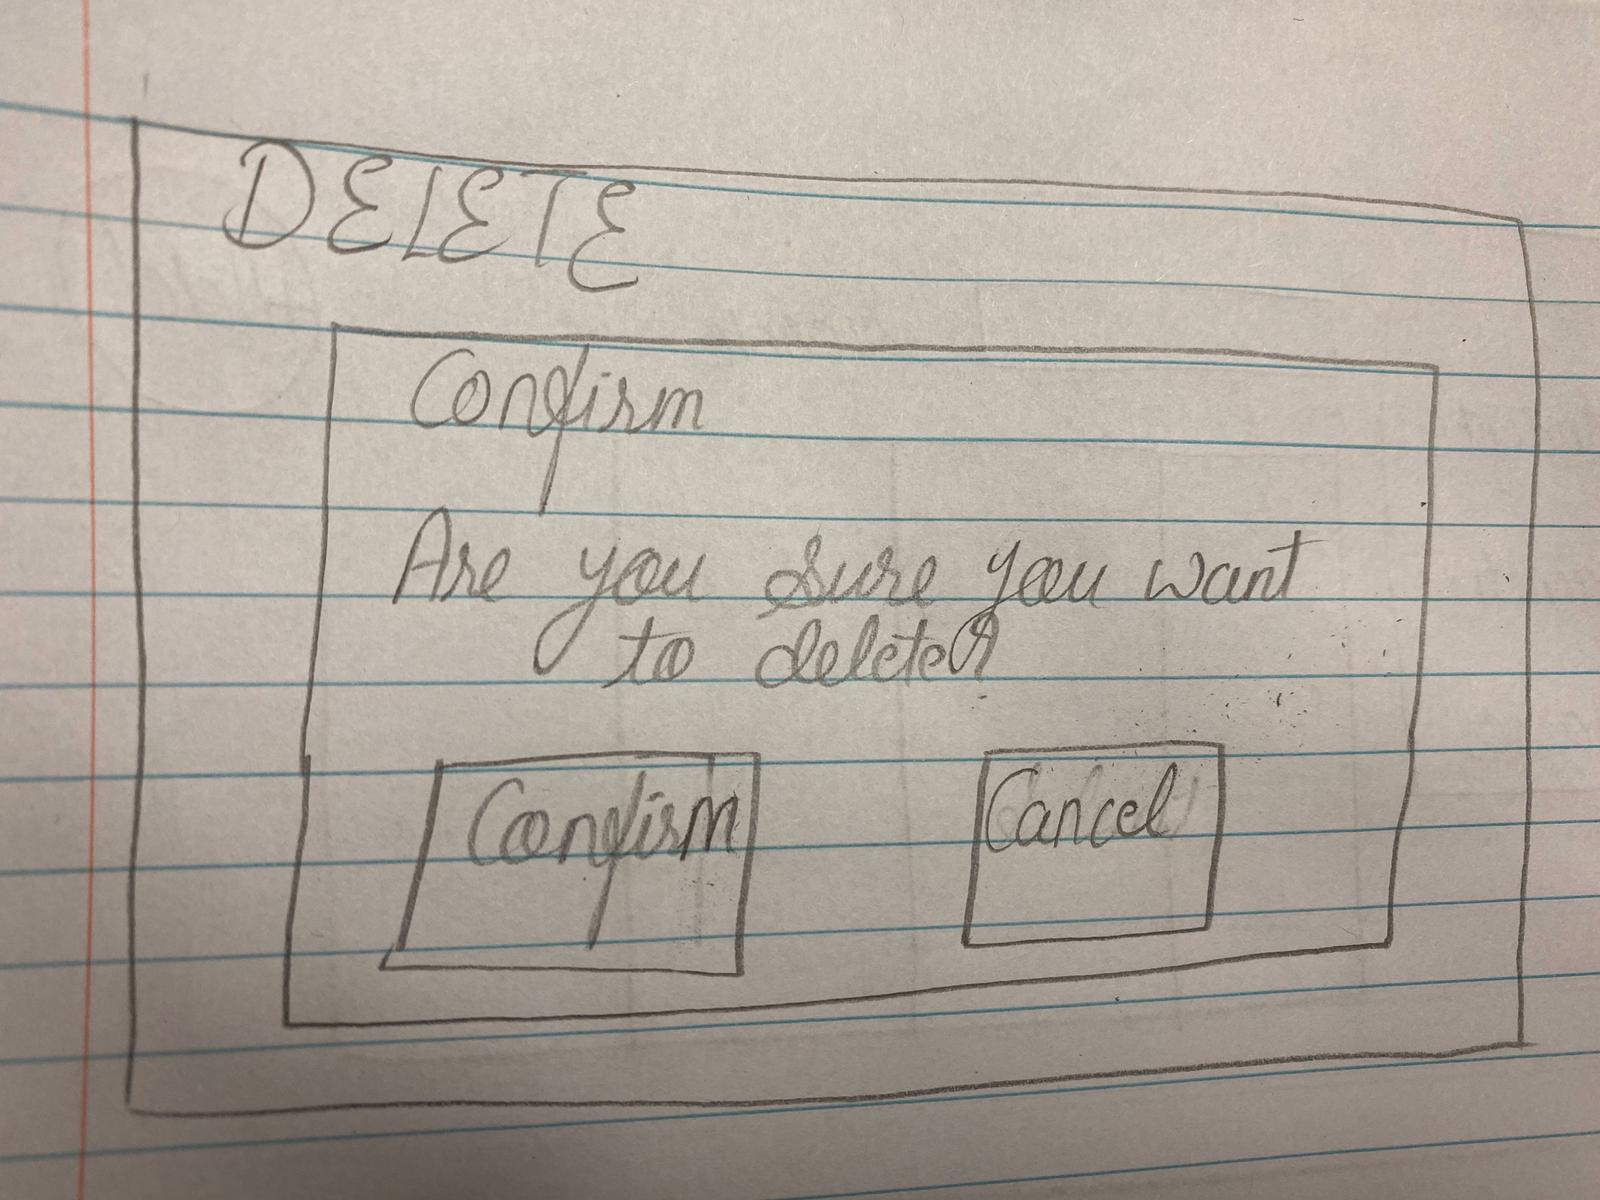 DELETE
Confirm
Are you sure you want
to delete?
Confirm
Cancel